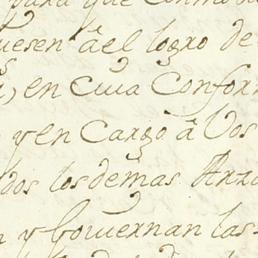 para que
uesen â el logro de
en cuia Confor
y en Cargo â Vos
dos los demas Arzo
y Gouiernan las